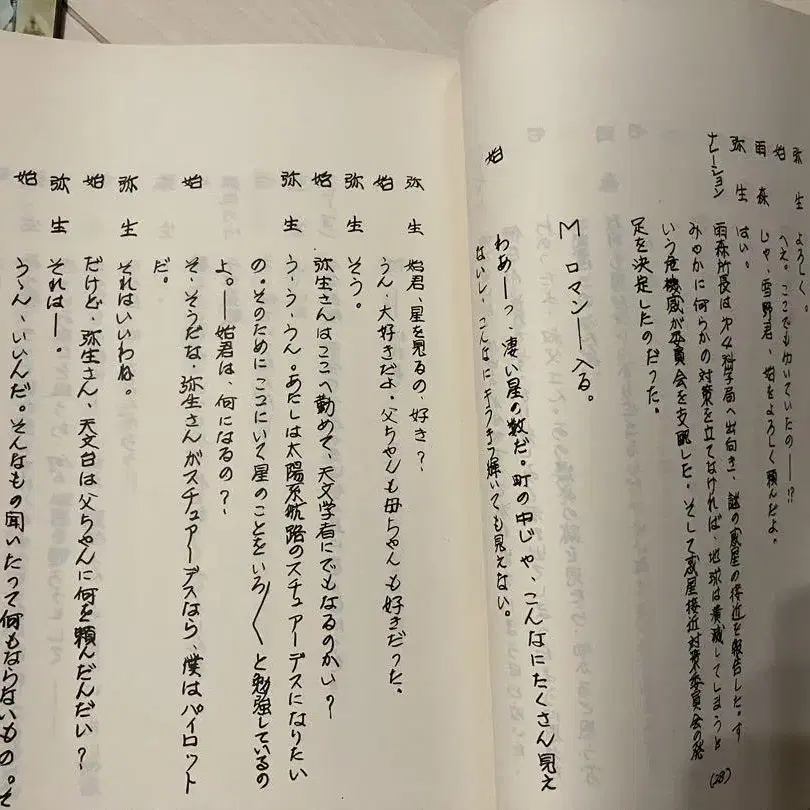 弥生　よろしく。
始　へえ。ここでも幼いていたの──!?
雨森　じゃ、雪野君、始をよろしく頼んだよ。
弥生　はい。
ナレーション　雨森所長は、科学局へ出向き、謎の惑星の接近を報告した。す
みやかに何らかの対策を立てなければ、地球は潰滅してしまうと
いう危機感が委員会を支配した。そして惑星接近対策委員会の発
足を決定したのだった。
M　ロマン──入る。
始　わあ──っ、凄い星の数だ。町の中じゃ、こんなにたくさん見え
ないし、こんなにキラキラ輝いても見えない。
(28)
弥生　始君、星を見るの、好き？
始　うん、大好きだよ。父ちゃんも母ちゃんも好きだった。
弥生　そう。
始　弥生さんはここへ勤めて、天文学者にでもなるのかい？
弥生　う・う・うん。あたしは太陽系航路のスチュアーデスになりたい
の。そのためにここにいて星のことをいろ〱と勉強しているの
よ。──始君は、何になるの？
始　そ・そうだな・弥生さんがスチュアーデスなら、僕はパイロット
だ。
弥生　それはいいわね。
始　だけど、弥生さん、天文台は父ちゃんに何を頼んだんだい？
弥生　それは──。
始　うゝん、いいんだ。そんなもの聞いたって何もならないもの。そ